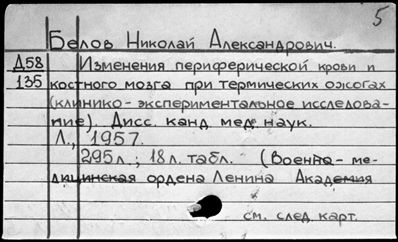 5
Белов Николай Александрович.
Д58 Изменения периферической крови и
135 костного мозга при термических ожогах
(клинико-экспериментальное исследова-
ние). Дисс. канд. мед. наук.
Л., 1957.
295л.; 18 л. табл. (Военно-ме-
дицинская ордена Ленина Академия
см. след. карт.